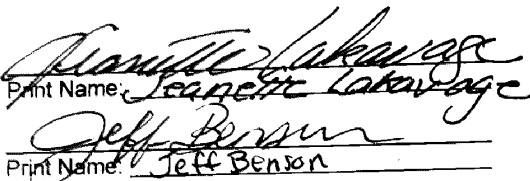 Jeanette Lakavage
Print Name: Jeanette Lakavage
Jeff Benson
Print Name: Jeff Benson